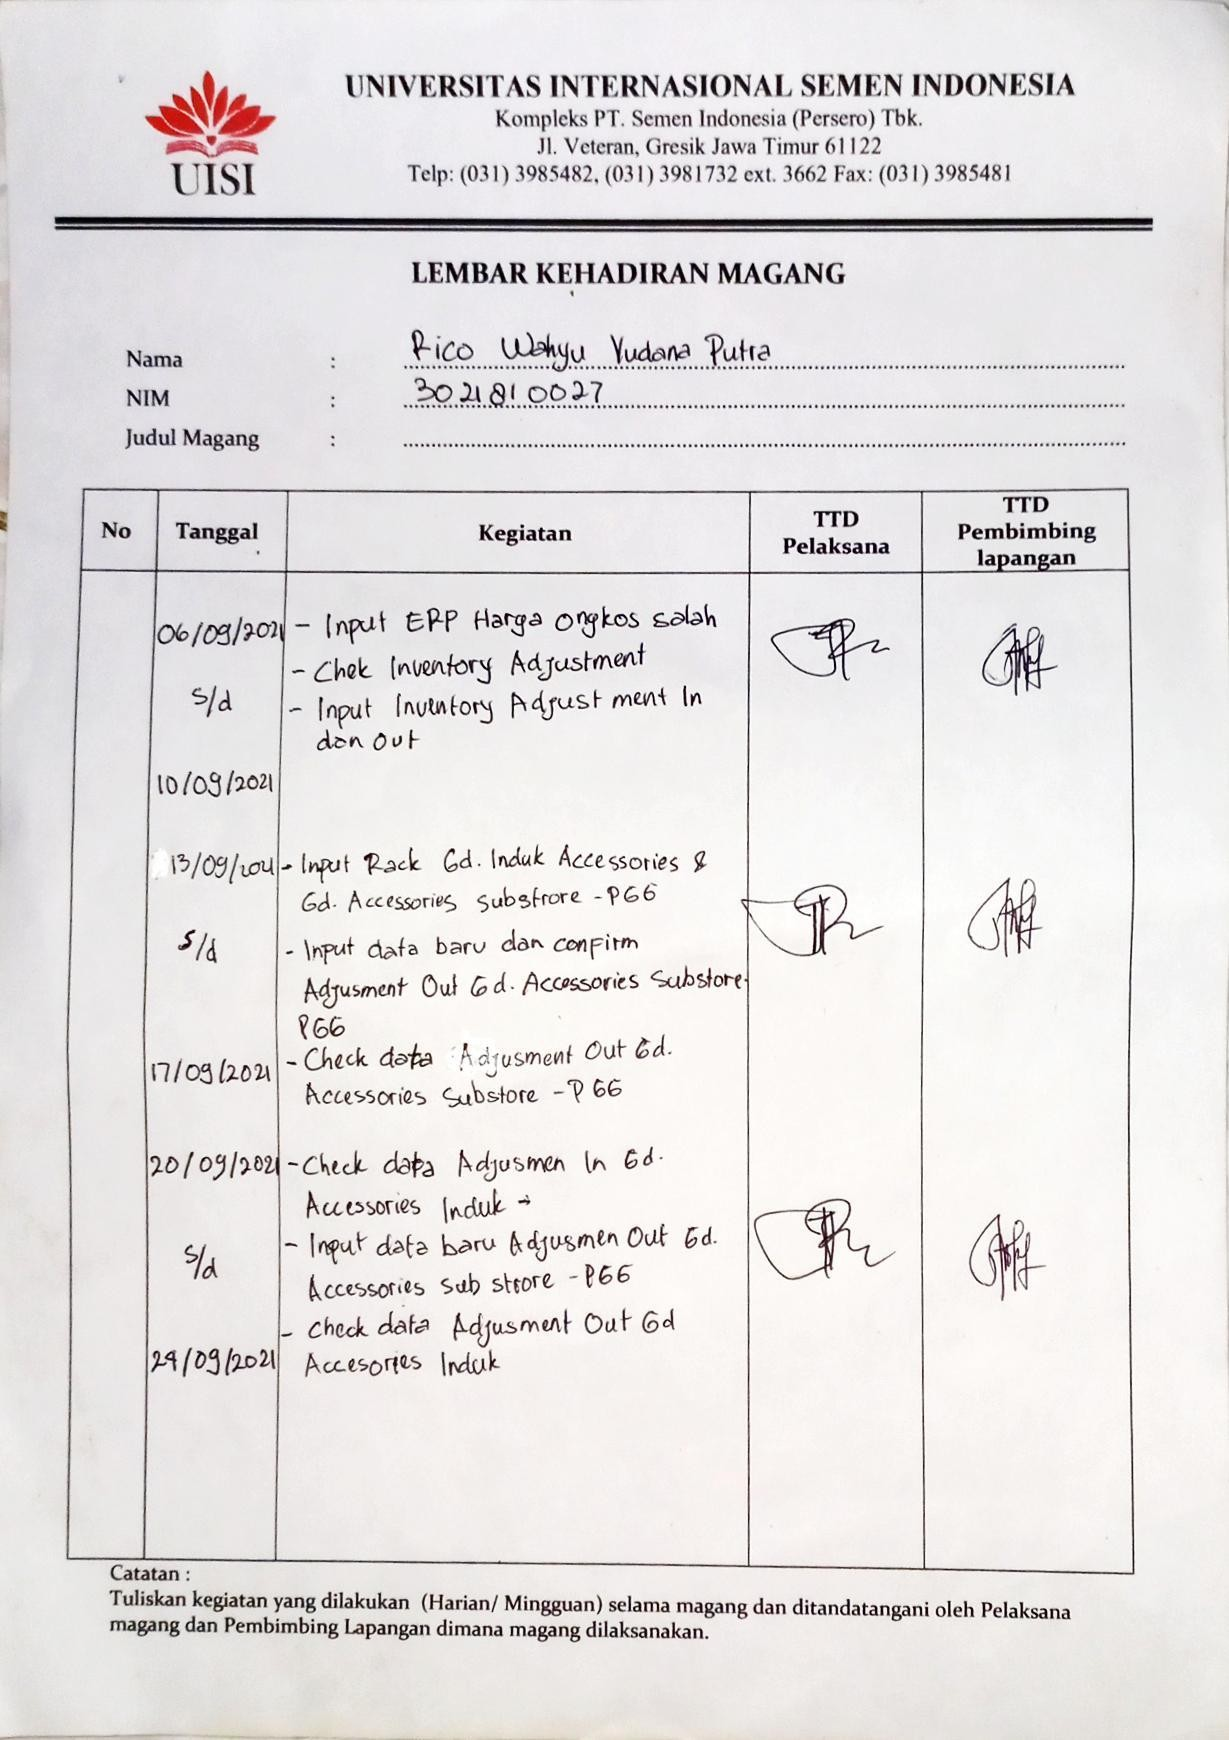 UISI
UNIVERSITAS INTERNASIONAL SEMEN INDONESIA
Kompleks PT. Semen Indonesia (Persero) Tbk.
Jl. Veteran, Gresik Jawa Timur 61122
Telp: (031) 3985482, (031) 3981732 ext. 3662 Fax: (031) 3985481
LEMBAR KEHADIRAN MAGANG
Nama : Rico Wahyu Yudana Putra
NIM : 3021810027
Judul Magang :
No Tanggal Kegiatan TTD Pelaksana TTD Pembimbing lapangan
06/09/2021 - Input ERP Harga Ongkos salah
- Chek Inventory Adjustment
s/d - Input Inventory Adjustment In
dan Out
10/09/2021
13/09/2021 - Input Rack Gd. Induk Accessories &
Gd. Accessories substrore - PGG
s/d - Input data baru dan confirm
Adjusment Out Gd. Accessories Substore-
PGG
- Check data Adjusment Out Gd.
17/09/2021 Accessories Substore - PGG
20/09/2021 - Check data Adjusmen In Gd.
Accessories Induk -
s/d - Input data baru Adjusmen Out Gd.
Accessories sub strore - PGG
- Check data Adjusment Out Gd
24/09/2021 Accesories Induk
Catatan :
Tuliskan kegiatan yang dilakukan (Harian/ Mingguan) selama magang dan ditandatangani oleh Pelaksana
magang dan Pembimbing Lapangan dimana magang dilaksanakan.